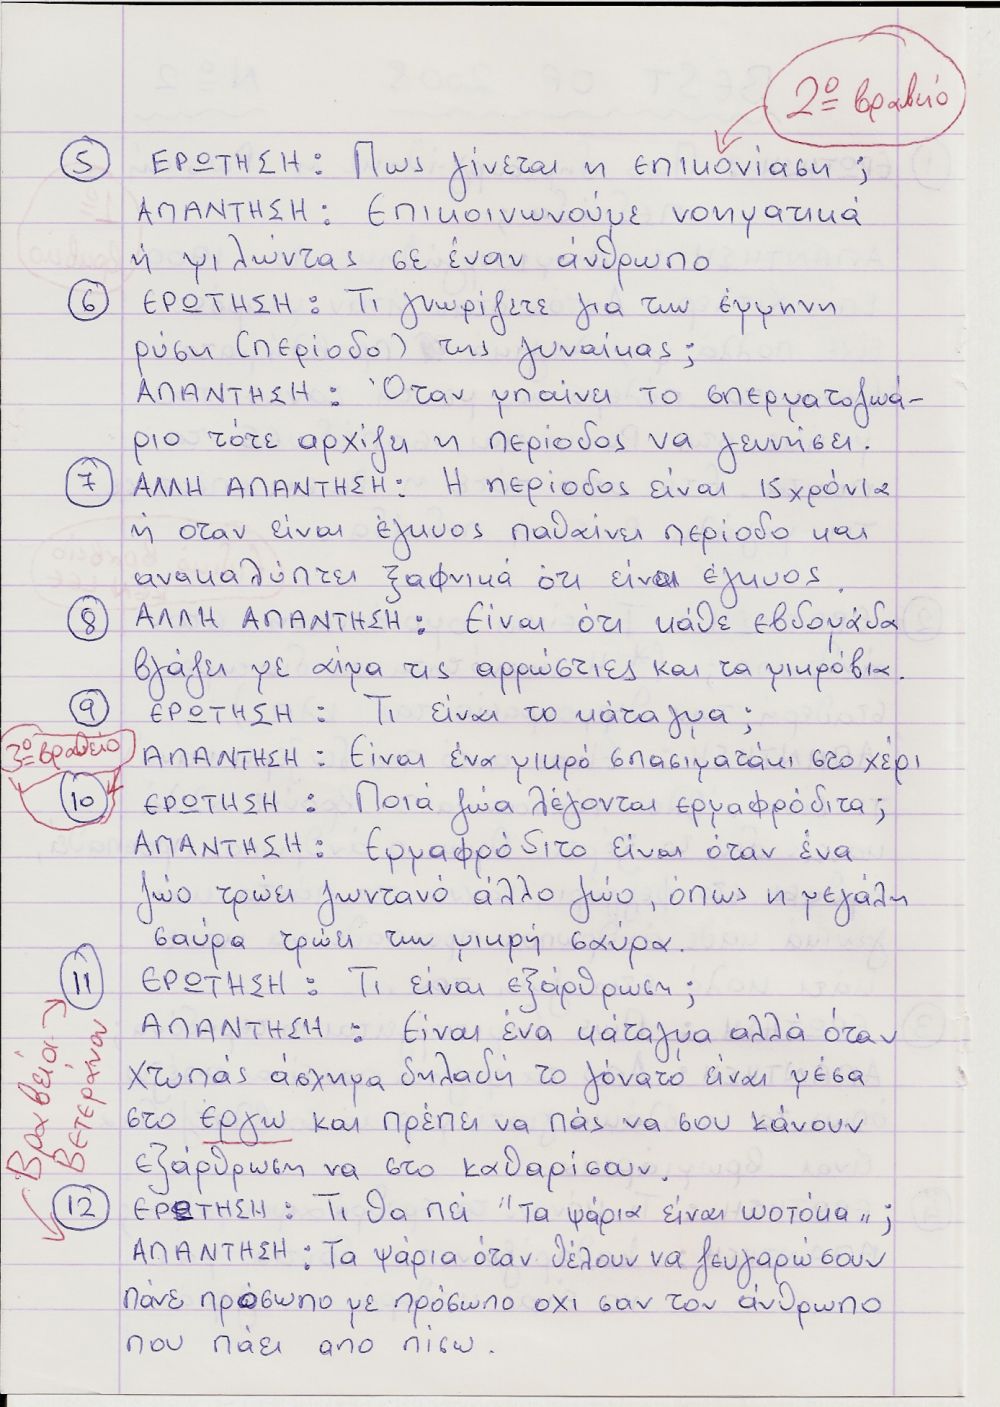 2ο βραβείο
⑤ ΕΡΩΤΗΣΗ: Πως γίνεται η επικονίαση;
ΑΠΑΝΤΗΣΗ: Επικοινωνούμε νοηματικά
ή μιλώντας σε έναν άνθρωπο
⑥ ΕΡΩΤΗΣΗ: Τι γνωρίζετε για την έμμηνη
ρύση (περίοδο) της γυναίκας;
ΑΠΑΝΤΗΣΗ: Όταν μπαίνει το σπερματοζωά-
ριο τότε αρχίζει η περίοδος να γεννήσει.
⑦ ΑΛΛΗ ΑΠΑΝΤΗΣΗ: Η περίοδος είναι 15 χρόνια
ή οταν είναι έγκυος παθαίνει περίοδο και
ανακαλύπτει ξαφνικά ότι είναι έγκυος.
⑧ ΑΛΛΗ ΑΠΑΝΤΗΣΗ: Είναι ότι κάθε εβδομάδα
βγάζει με αίμα τις αρρώστιες και τα μικρόβια.
⑨ ΕΡΩΤΗΣΗ: Τι είναι το κάταγμα;
ΑΠΑΝΤΗΣΗ: Είναι ένα μικρό σπασιματάκι στο χέρι
3ο βραβείο
⑩ ΕΡΩΤΗΣΗ: Ποιά ζώα λέγονται ερμαφρόδιτα;
ΑΠΑΝΤΗΣΗ: Ερμαφρόδιτο είναι όταν ένα
ζώο τρώει ζωντανό άλλο ζώο, όπως η μεγάλη
σαύρα τρώει την μικρή σαύρα.
⑪ ΕΡΩΤΗΣΗ: Τι είναι εξάρθρωση;
ΑΠΑΝΤΗΣΗ: Είναι ένα κάταγμα αλλά όταν
χτυπάς άσχημα δηλαδή το γόνατό είναι μέσα
στο έργω και πρέπει να πάς να σου κάνουν
εξάρθρωση να στο καθαρίσουν.
Βραβεία
Βετεράναν
⑫ ΕΡΩΤΗΣΗ: Τι θα πεί "Τα ψάρια είναι ωοτόκα";
ΑΠΑΝΤΗΣΗ: Τα ψάρια όταν θέλουν να ζευγαρώσουν
πάνε πρόσωπο με πρόσωπο οχι σαν τον άνθρωπο
που πάει απο πίσω.